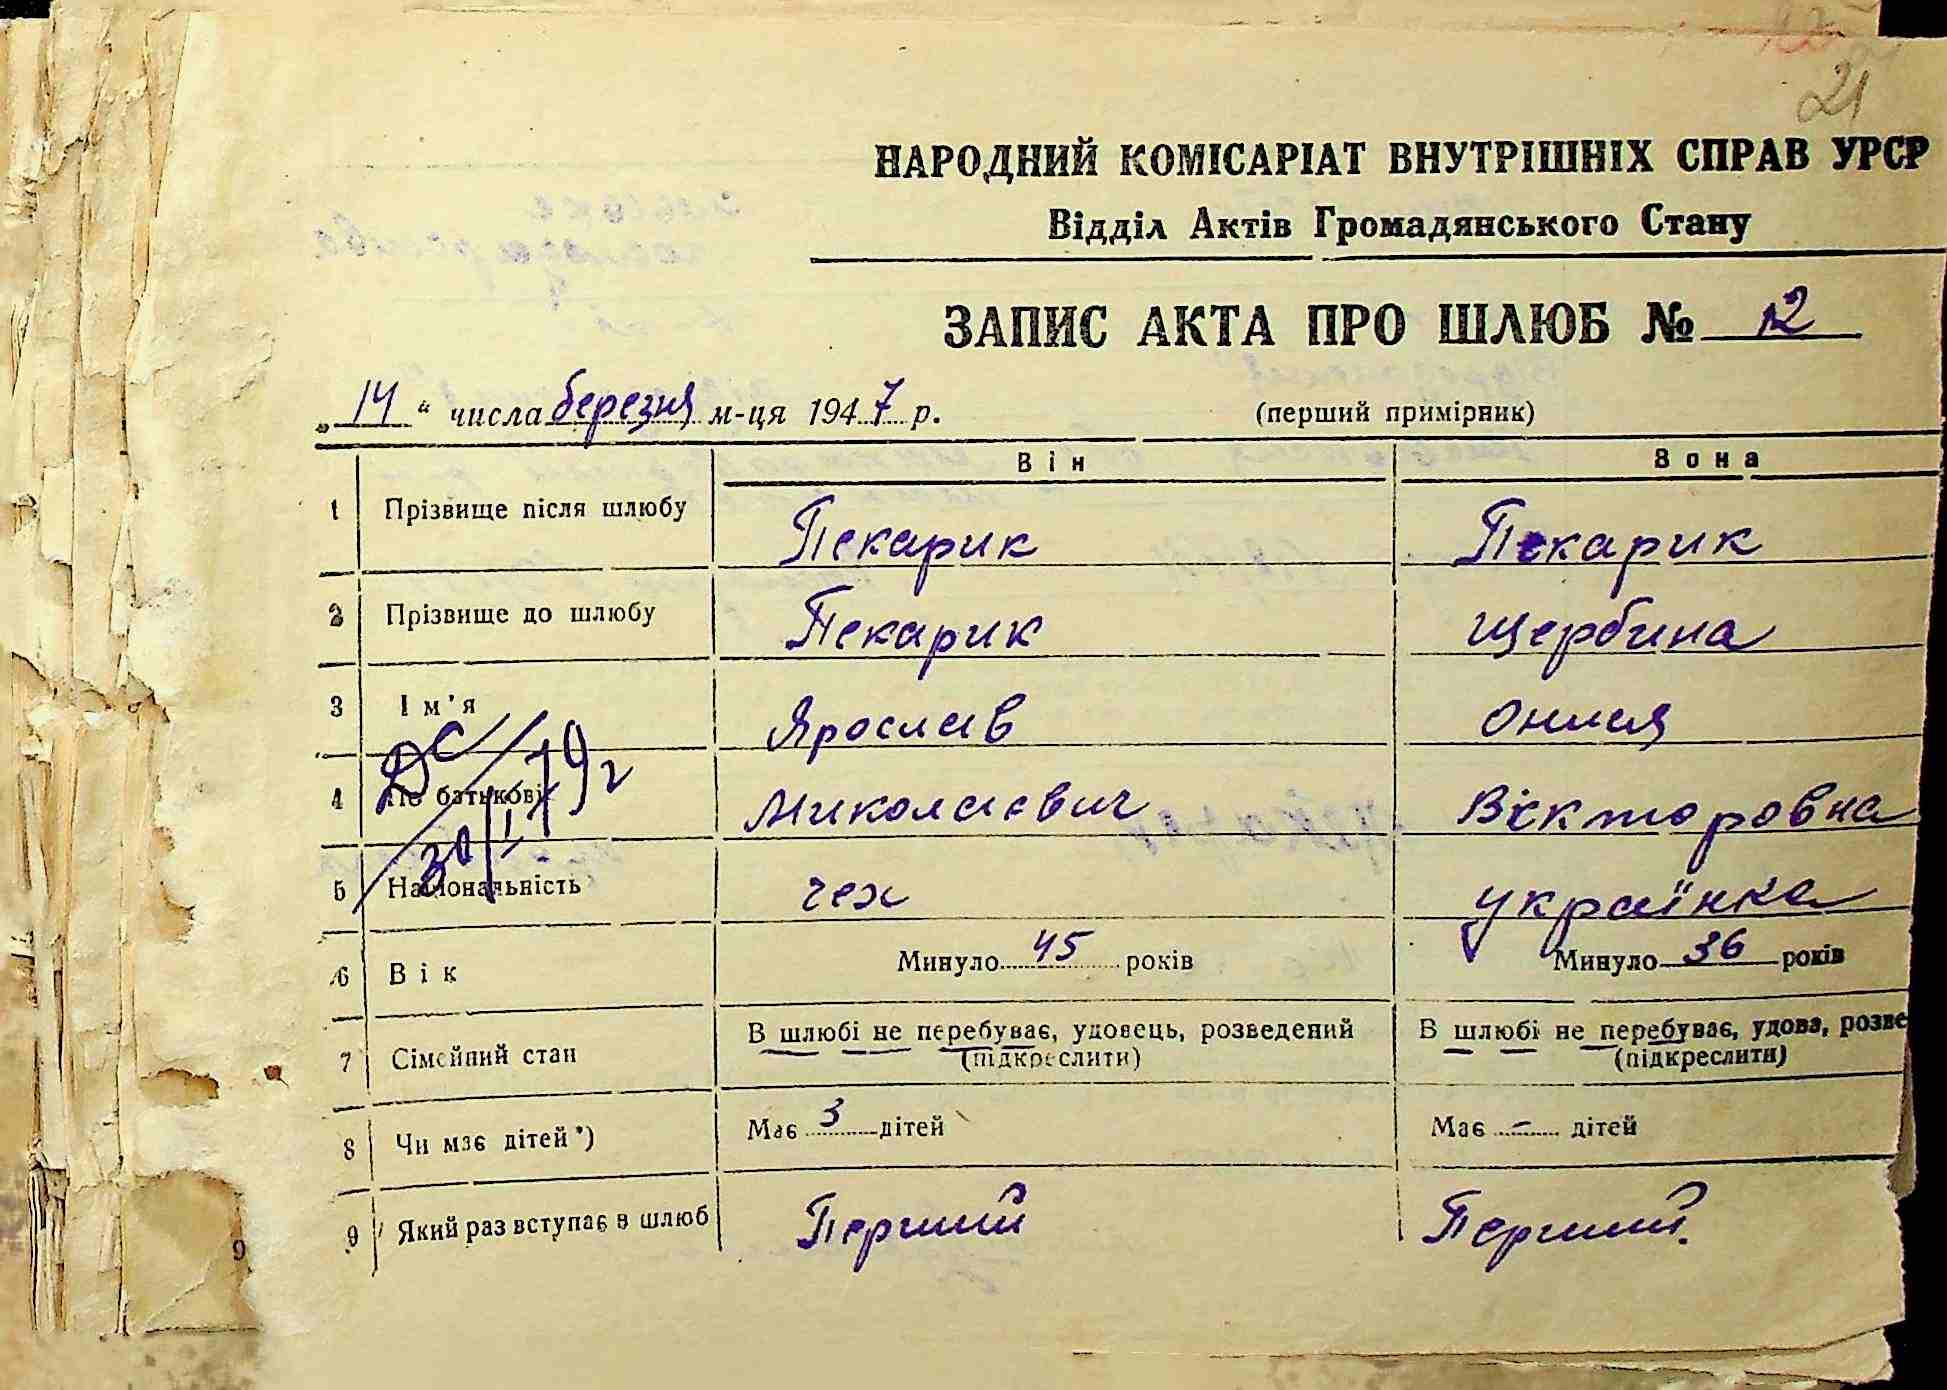 21
НАРОДНИЙ КОМІСАРІАТ ВНУТРІШНІХ СПРАВ УРСР
Відділ Актів Громадянського Стану
ЗАПИС АКТА ПРО ШЛЮБ № 12
„14“ числа березня м-ця 1947 р. (перший примірник)
Він Вона
1 Прізвище після шлюбу Пекарик Пекарик
2 Прізвище до шлюбу Пекарик Щербина
3 Ім'я Ярослав Онися
4 По батькові Миколаєвич Вікторовна
5 Національність чех українка
6 Вік Минуло 45 років Минуло 36 років
7 Сімейний стан В шлюбі не перебуває, удовець, розведений В шлюбі не перебуває, удова, розве
(підкреслити) (підкреслити)
8 Чи має дітей*) Має 3 дітей Має – дітей
9 Який раз вступає в шлюб Перший Перший.
9